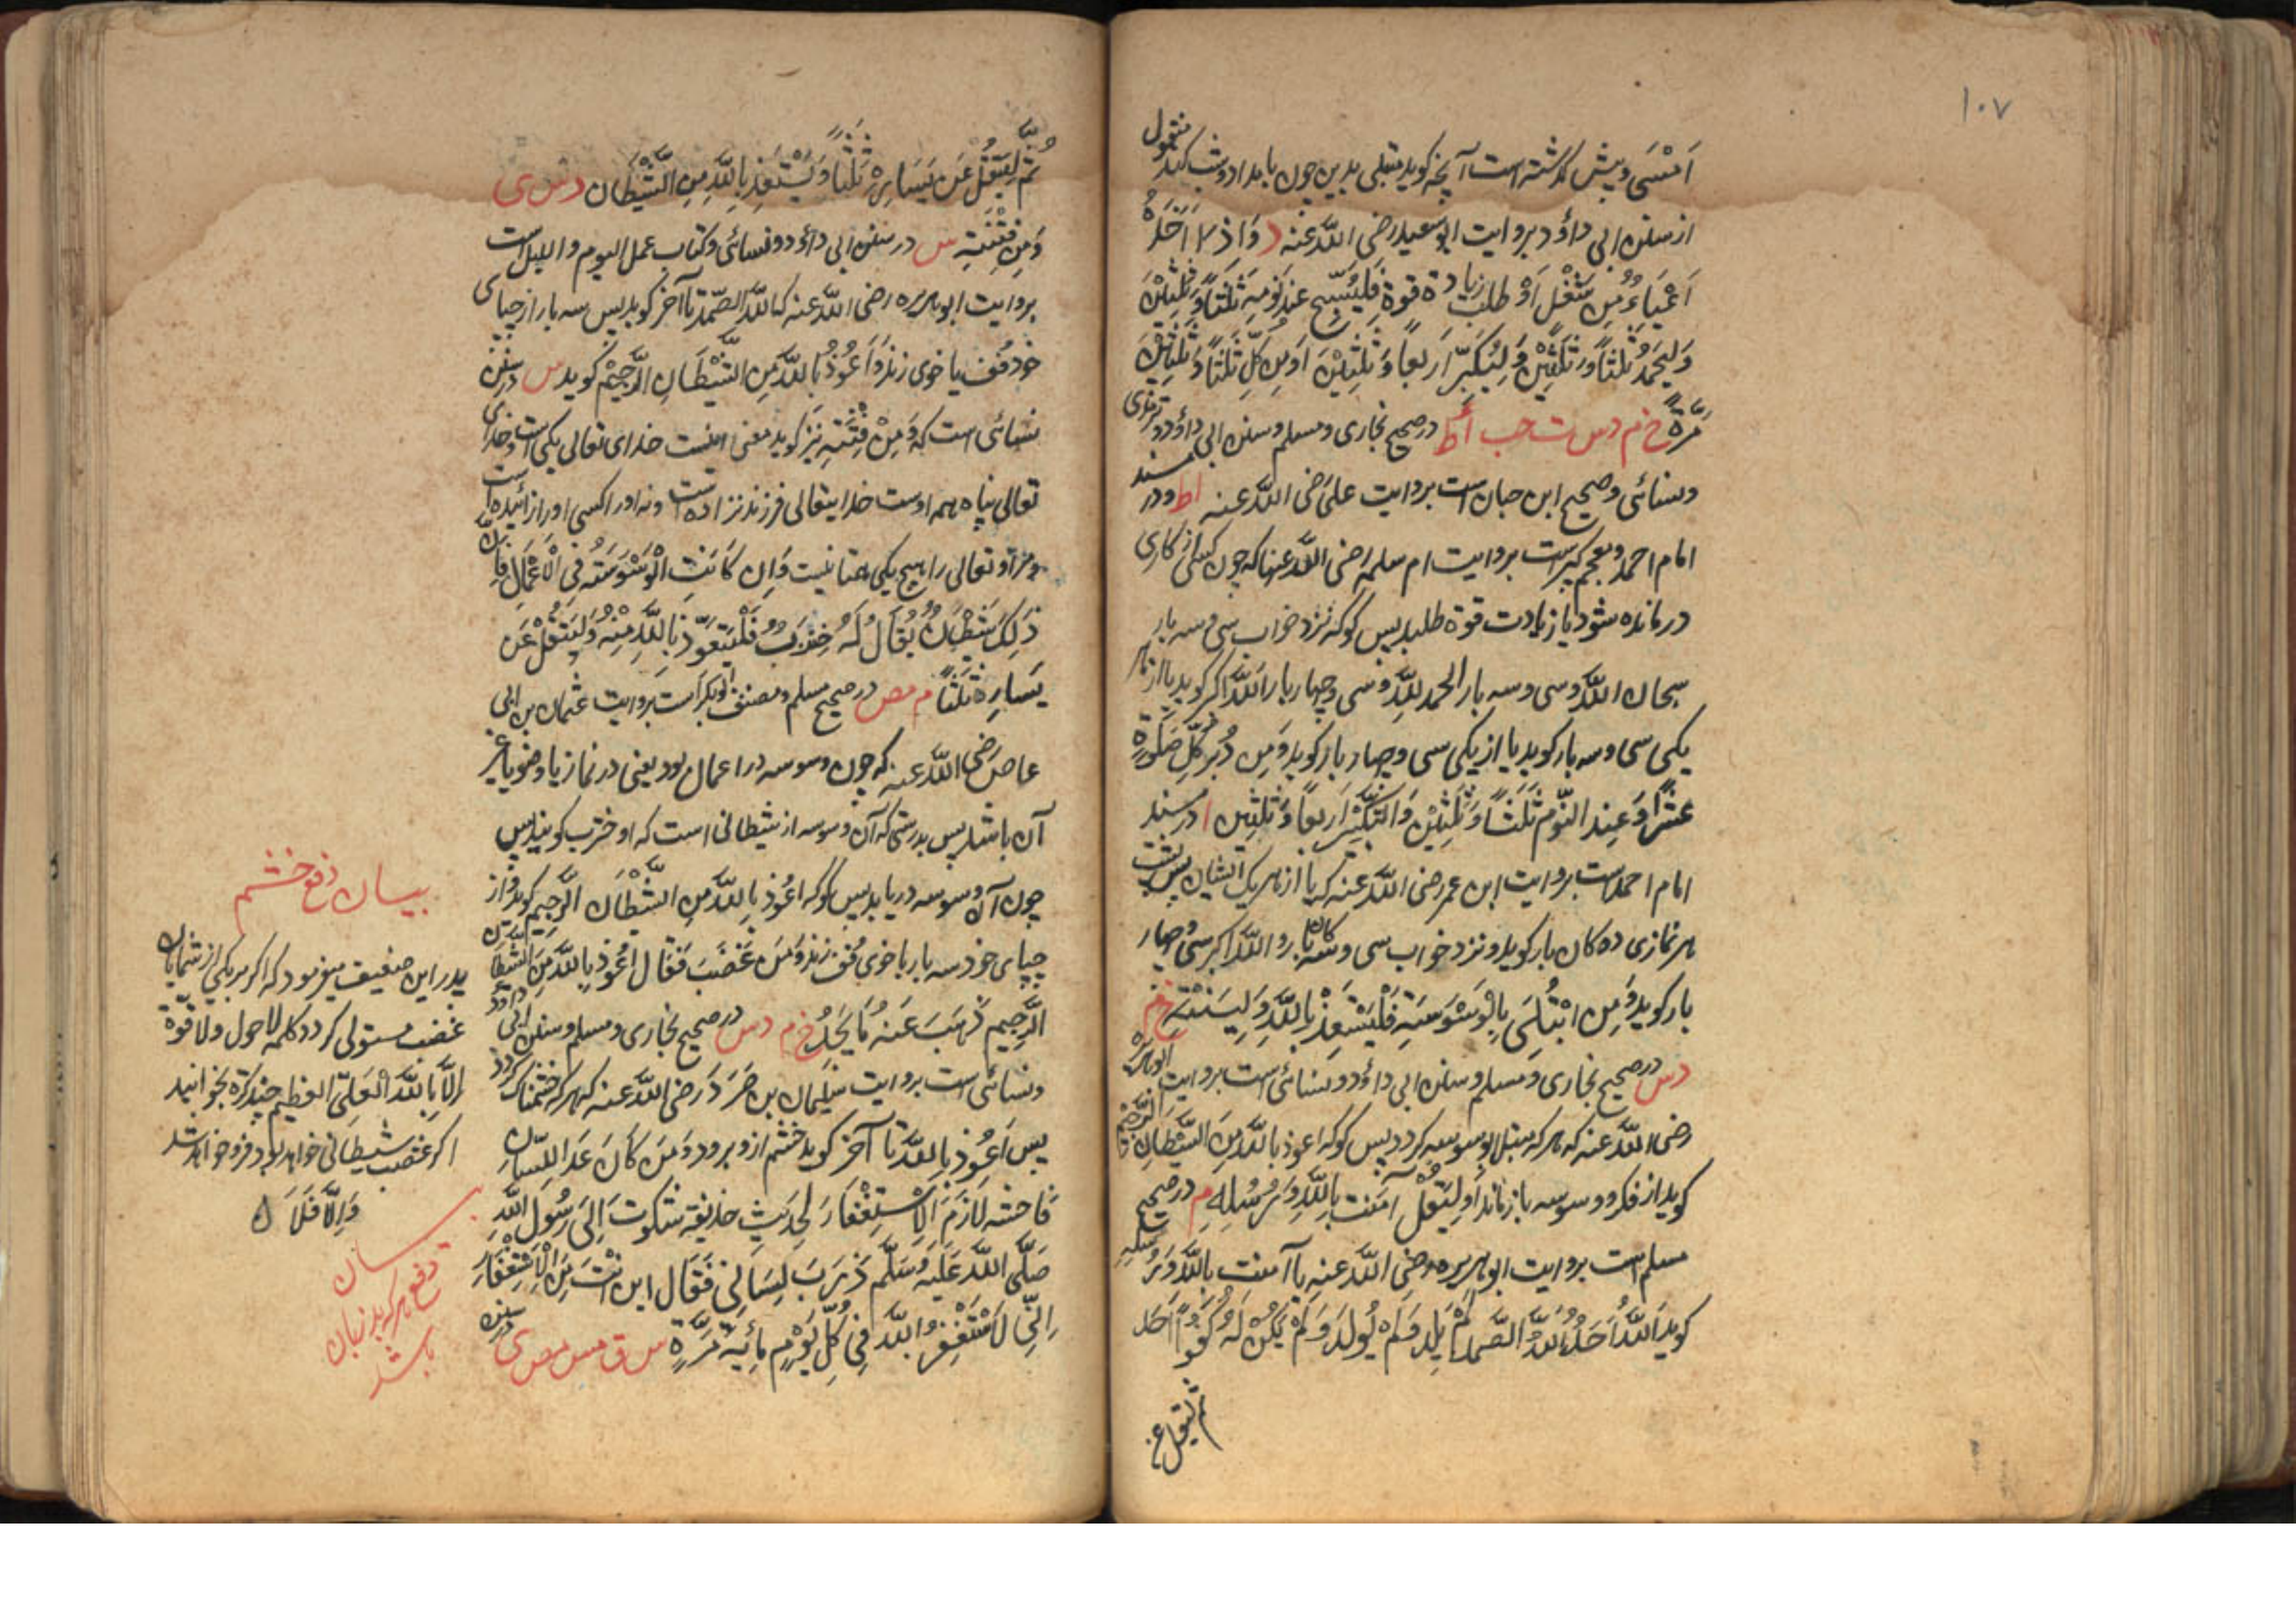 ١٠٧
اَمْسَى و پیش گذشته است آنچه گوید مبتلی بدین چون بامداد و شب کند منقول
از سنن ابی داؤد بروایت ابو سعید رضی اللّٰه عنه د وَاِذَا اَخَذَهُ
اَعْيَاءٌ مِنْ شُغْلٍ اَوْ طلبَ زيادةِ قوةٍ فَلْيُسَبِّحْ عِنْدَ نَوْمِهِ ثَلٰثًا وَثَلٰثِيْنَ
وَلْيَحْمَدْ ثَلٰثًا وَثَلٰثِيْنَ وَلْيُكَبِّرْ اَرْبعاً وَثَلٰثِيْنَ اَوْ مِنْ كُلٍّ ثَلٰثًا وَثَلٰثِيْنَ
مَرَّةً خ م د س ت حب أ ط در صحیح بخاری و مسلم و سنن ابی داؤد و ترمذی
و نسائی و صحیح ابن حبان است بروایت علی رضی اللّٰه عنه ا ط و در مسند
امام احمد و معجم کبیرست بروایت ام سلمه رضی اللّٰه عنها که چون کسی از کاری
درمانده شود یا زیادت قوة طلبد پس گو که نزد خواب سی و سه بار
سبحان اللّٰه و سی و سه بار الحمد للّٰه و سی و چهار بار اللّٰه اکبر گوید یا از هر
یکی سی و سه بار گوید یا از یکی سی و چهار بار گوید وَمِنْ دُبُرِ كُلِّ صَلٰوةٍ
عَشْرًا وَعِنْدَ النَّوْمِ ثَلٰثًا وَثَلٰثِيْنَ وَالتَّكْبِيْرُ اَرْبعاً وَثَلٰثِيْنَ ا در مسند
امام احمدست بروایت ابن عمر رضی اللّٰه عنه که یا از هر یک ایشان پس
هر نمازی ده گان بار گوید و نزد خواب سی و سه گان بار و اللّٰه اکبر سی و چهار
بار گوید وَمَنِ ابْتُلِيَ بِالْوَسْوَسَةِ فَلْيَسْتَعِذْ بِاللّٰهِ وَلْيَنْتَهِ خ م
د س در صحیح بخاری و مسلم و سنن ابی داؤد و نسائی است بروایت ابو هریره
رضی اللّٰه عنه که هر که مبتلی بوسوسه گردد پس گو که اعوذ باللّٰه مِنَ الشَّيْطَانِ الرجيم
گوید از فکر و وسوسه باز ماند اَوْ لِيَقُلْ اٰمَنْتُ بِاللّٰهِ وَرُسُلِهِ م در صحیح
مسلم است بروایت ابو هریره رضی اللّٰه عنه یا آمنت باللّٰه وَرُسُلِهِ
گوید اَللّٰهُ اَحَدٌ اَللّٰهُ الصَّمَدُ لَمْ يَلِدْ وَلَمْ يُولَدْ وَلَمْ يَكُنْ لَهُ كُفُوًا اَحَدٌ
ثم لیتفل عن
ثُمَّ لْيَتْفُلْ عَنْ يَسَارِهِ ثَلٰثًا وَلْيَسْتَعِذْ بِاللّٰهِ مِنَ الشَّيْطَانِ د س ی
وَمِنْ فِتْنَتِهِ س در سنن ابی داؤد و نسائی و کتاب عمل الیوم و اللیل است
بروایت ابو هریره رضی اللّٰه عنه که اللّٰه الصّمد تا آخر گوید پس سه بار از چپای
خود تُف یا خوی زند وَ اَعُوذُ بِاللّٰهِ مِنَ الشَّيْطَانِ الرَّجِيْمِ گوید س در سنن
نسائی است که وَمِنْ فِتْنَتِهِ نیز گوید معنی اینست خدای تعالی یکی است و خدای
تعالی پناه همه اوست خدایتعالی فرزند نزاده است و نه او را کسی او را زائیده است
و مر او تعالی را هیچ یکی همتا نیست وَاِنْ كَانَتِ الْوَسْوَسَةُ فِى الْاَعْمَالِ فَاِنَّ
ذٰلِكَ شَيْطَانٌ يُقَالُ لَهُ خِنْزَبٌ فَلْيَتَعَوَّذْ بِاللّٰهِ مِنْهُ وَلْيَتْفُلْ عَنْ
يَسَارِهِ ثَلٰثًا م مص در صحیح مسلم و مصنف ابو بکر است بروایت عثمان بن ابی
عاص رضی اللّٰه عنه که چون وسوسه در اعمال بود یعنی در نماز یا وضو یا غیر
آن باشد پس بدرستی که آن وسوسه از شیطانی است که او خنزب گویند پس
چون آن وسوسه دریابد پس گو که اعُوذ بِاللّٰهِ مِنَ الشَّيْطَانِ الرَّجِيمِ گوید و از
چپای خود سه بار یا خوی تُف زند وَمَنْ غَضِبَ فَقَالَ اعُوْذُ بِاللّٰهِ مِنَ الشَّيْطَانِ
الرَّجِيمِ ذَهَبَ عَنْهُ مَا يَجِدُ خ م د س در صحیح بخاری و مسلم و سنن ابی داؤد
و نسائی است بروایت سلیمان بن صرد رضی اللّٰه عنه که هر که خشمناک گردد
پس اَعُوْذُ بِاللّٰه تا آخر گوید خشم ازو برود وَمَنْ كَانَ حَدَّ اللِّسَانِ
فَاحِشَهُ لَازَمَ الْاِسْتِغْفَارَ لِحَدِيْثِ حُذَيْفَةَ شَكَوْتُ اِلٰى رَسُولِ اللّٰهِ
صَلَّى اللّٰهُ عَلَيْهِ وَسَلَّمَ ذَرَبَ لِسَانِى فَقَالَ اَيْنَ اَنْتَ مِنَ الْاِسْتِغْفَارِ
اِنِّى لَاَسْتَغْفِرُ اللّٰهَ فِى كُلِّ يَوْمٍ مِائَةَ مَرَّةٍ س ق مس مص ی در سنن
بیان دفع خشم
پدر این ضعیف میفرمود که اگر بر یکی از شمایان
غضب مستولی گردد کلمه لا حول ولا قوّة
اِلَّا بِاللّٰهِ الْعَلِىِّ العظیم چند کرة بخوانید
اگر غضب شیطانی خواهد بود فرو خواهد شد
وَاِلَّا فَلَا
بیان
دفع هر که بد زبان
باشد